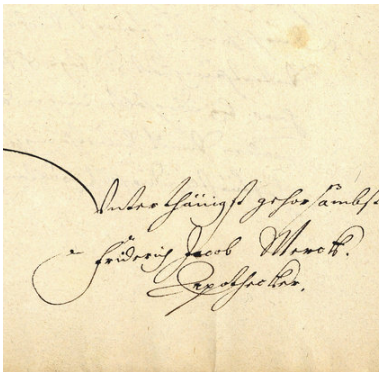 Unterthänigst gehorsambst
Friderich Jacob Merck.
Apothecker.